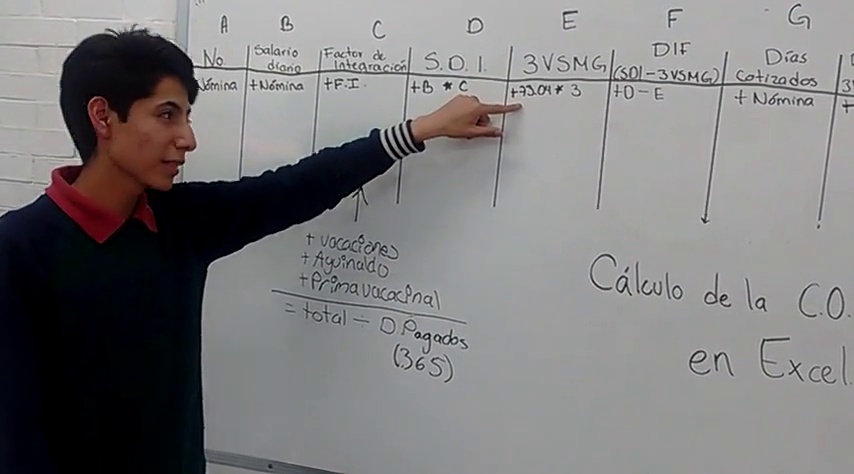 A B C D E F G
No. Salario diario Factor de integración S.D.I. 3VSMG DIF (SDI-3VSMG) Días cotizados
Nómina +Nómina +F.I. +B * C +73.04* 3 +D-E +Nómina +
+ vacaciones
+ Aguinaldo
+Prima vacacinal
= total ÷ D.Pagados
(365)
Cálculo de la C.O.
en Excel.